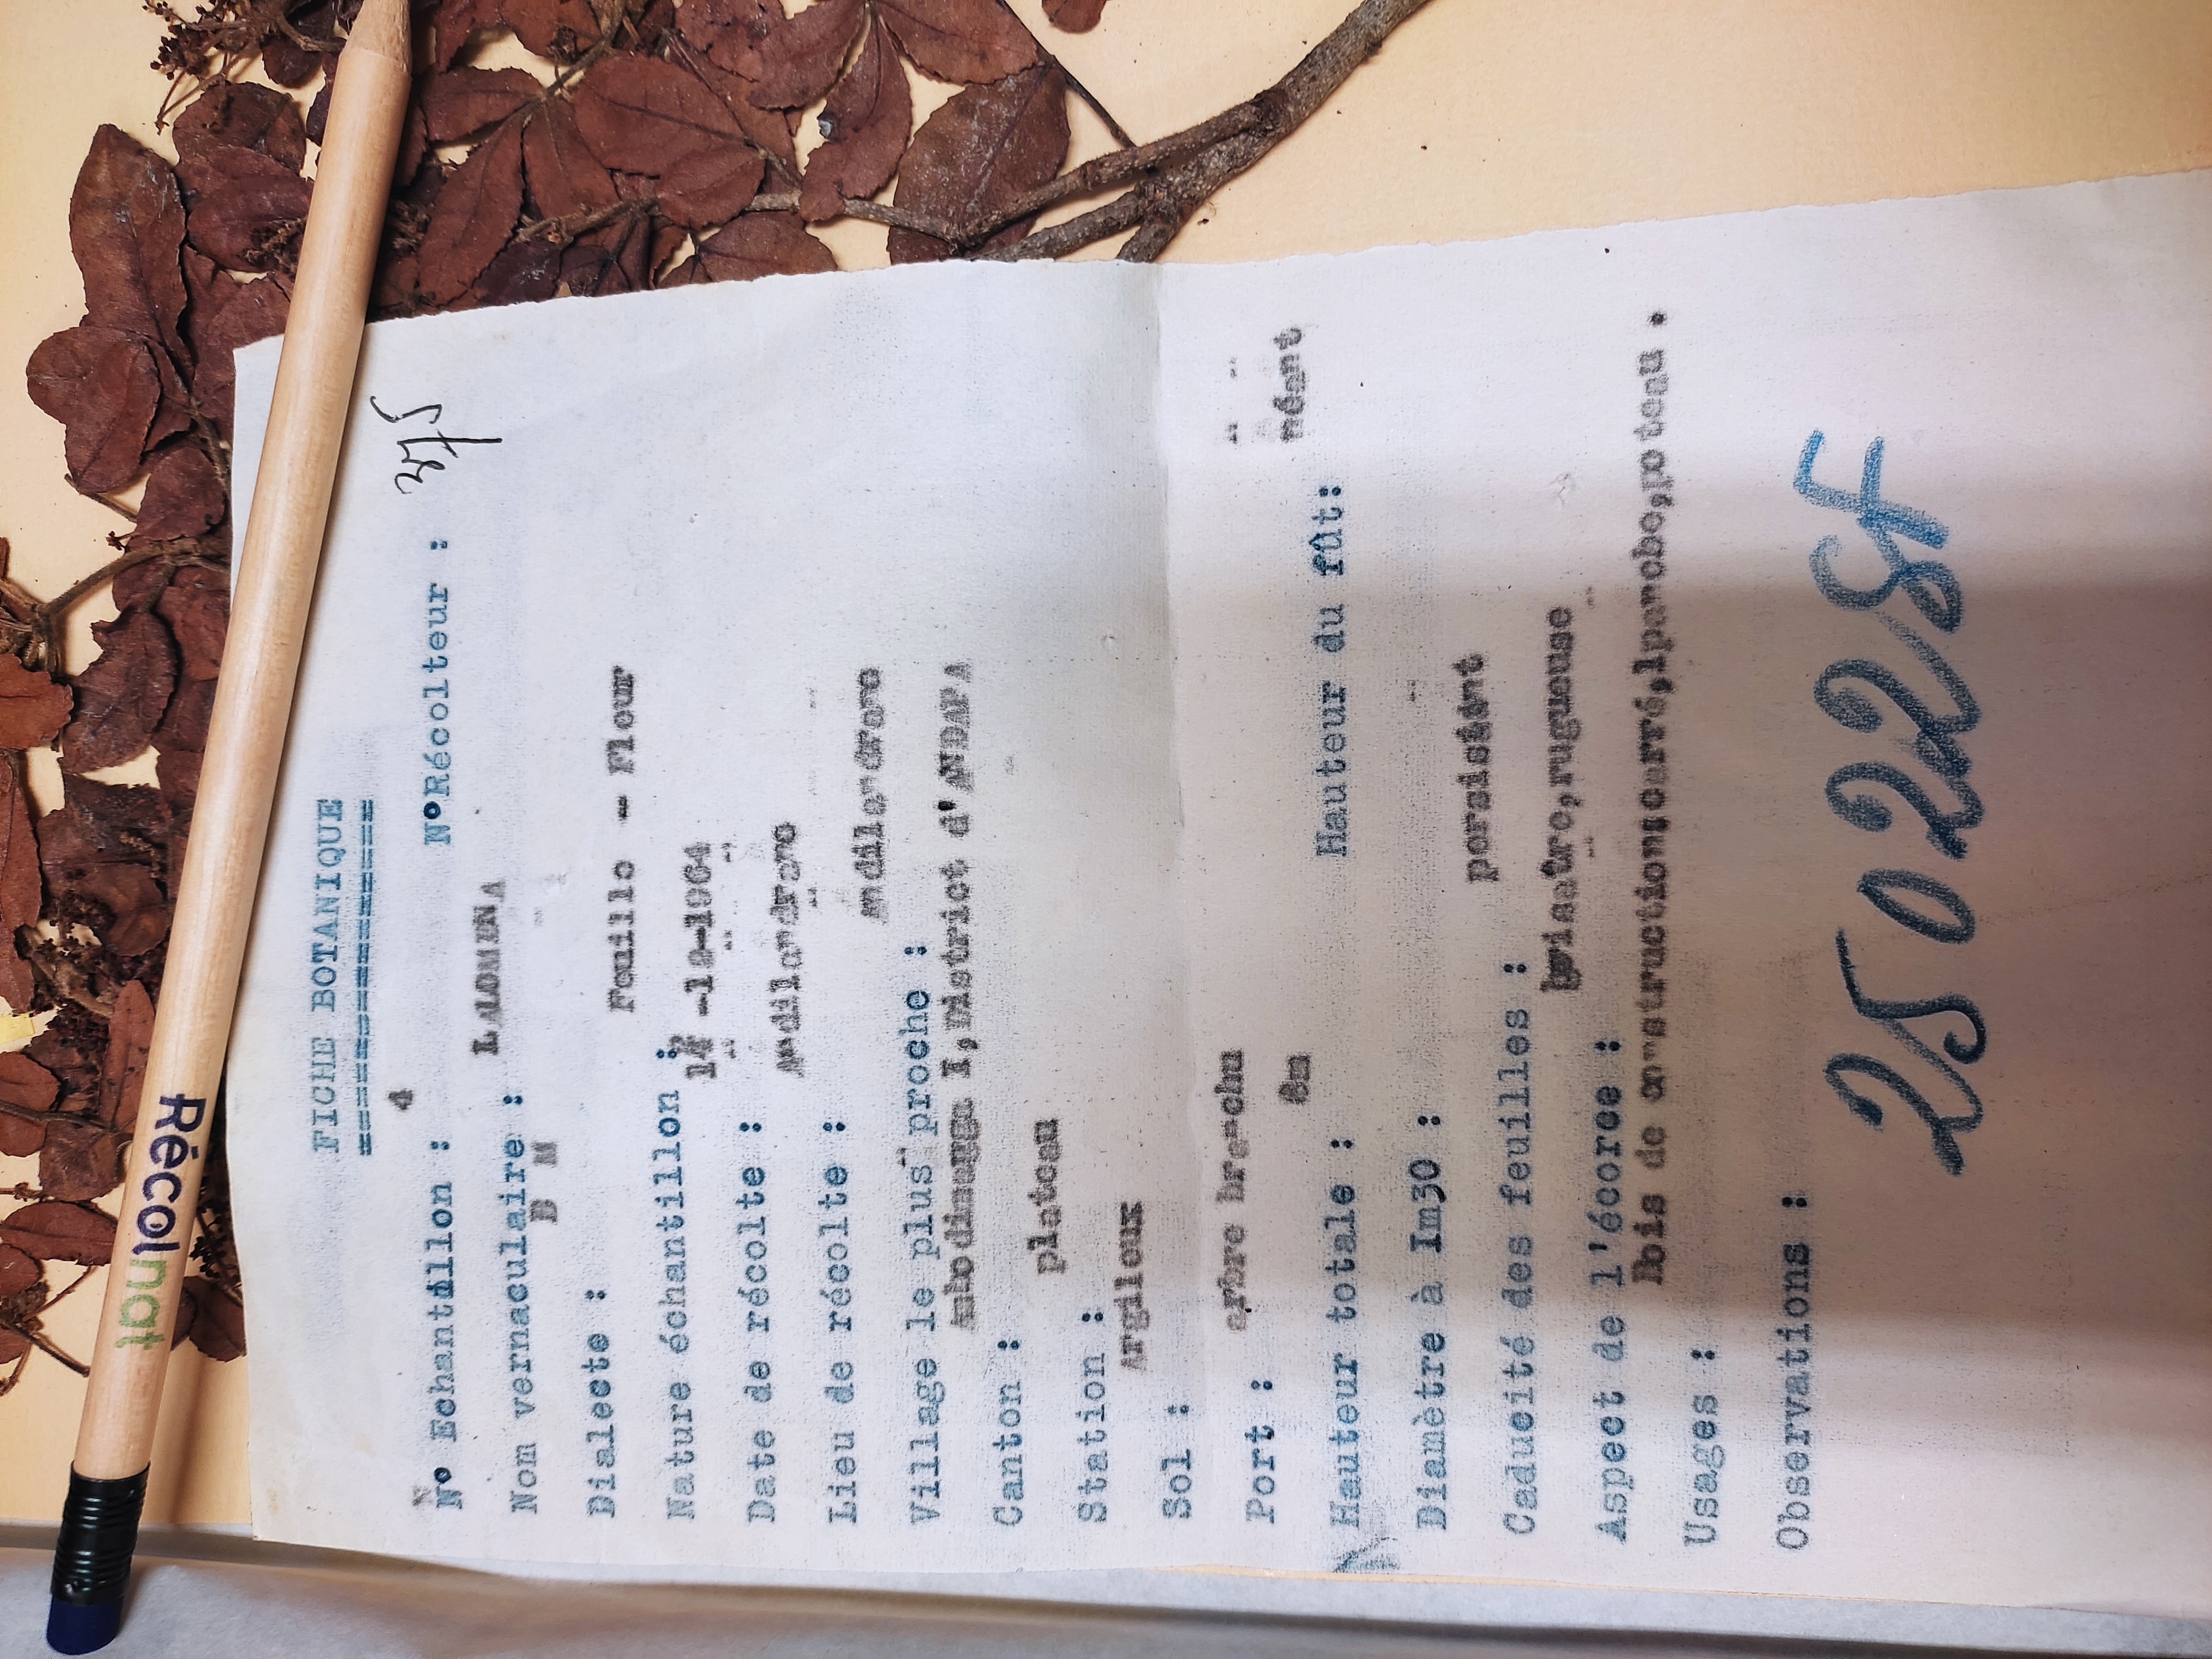 FICHE BOTANIQUE
=====================
N° Echantillon : 4 N°Récolteur :
Nom vernaculaire : LALOMENA
Dialecte : B M
Nature échantillon : Feuille - Fleur
Date de récolte : -12-1964
Lieu de récolte :
Village le plus proche :
Canton : I, District d'ANDAPA
Station : plateau
Sol : Argileux
Port : arbre branchu
Hauteur totale : 8m Hauteur du fût: néant
Diamètre à Im30 :
Caducité des feuilles : persistent
Aspect de l'écorce : grisatre, rugueuse
Usages : bois de construction:carré, poteau .
Observations :
25022SF
Récolnat